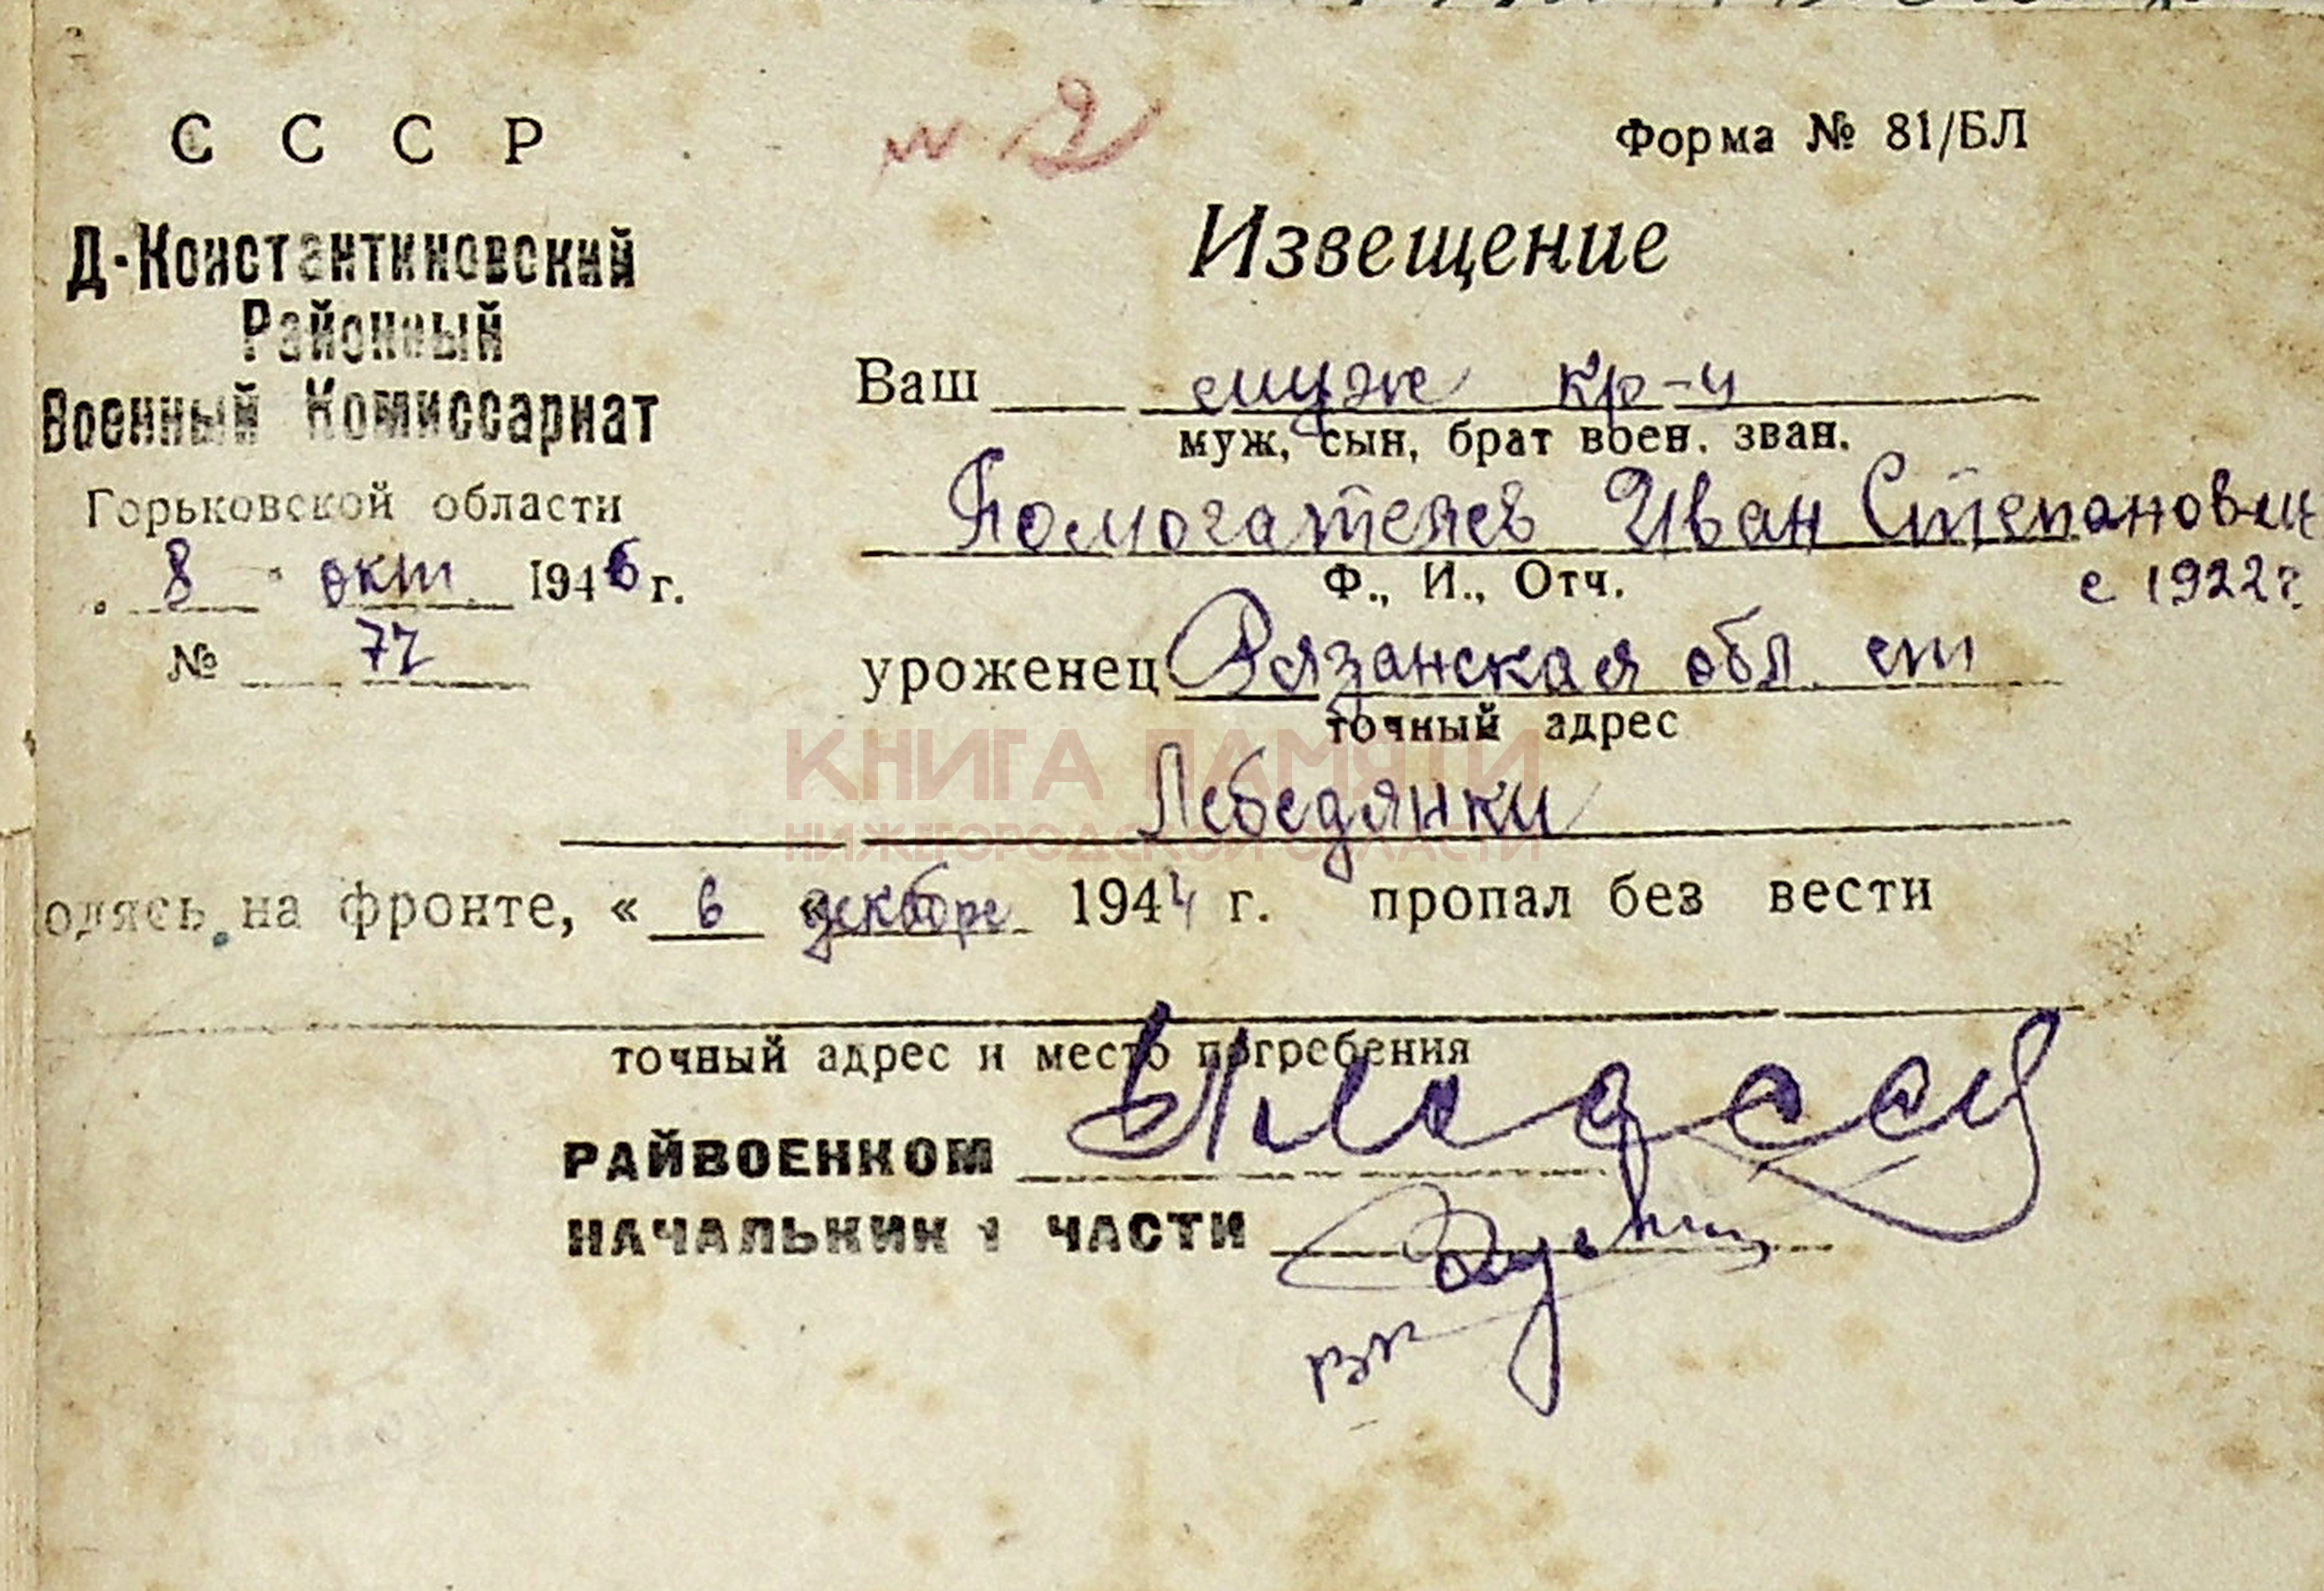 С С С Р
Д-Константиновский
Районный
Военный Комиссариат
Горьковской области
8 окт 1946 г.
№ 72
№ 2
Форма № 81/БЛ
Извещение
Ваш муж кр-ц
муж, сын, брат воен. зван.
Помогателев Иван Степанович
Ф., И., Отч.
с 1922 г.
уроженец Рязанская обл ст
точный адрес
Лебедянки
КНИГА ПАМЯТИ
НИЖЕГОРОДСКОЙ ОБЛАСТИ
одясь на фронте, « в декабре 1944 г. пропал без вести
точный адрес и место погребения
РАЙВОЕНКОМ
НАЧАЛЬНИК 1 ЧАСТИ